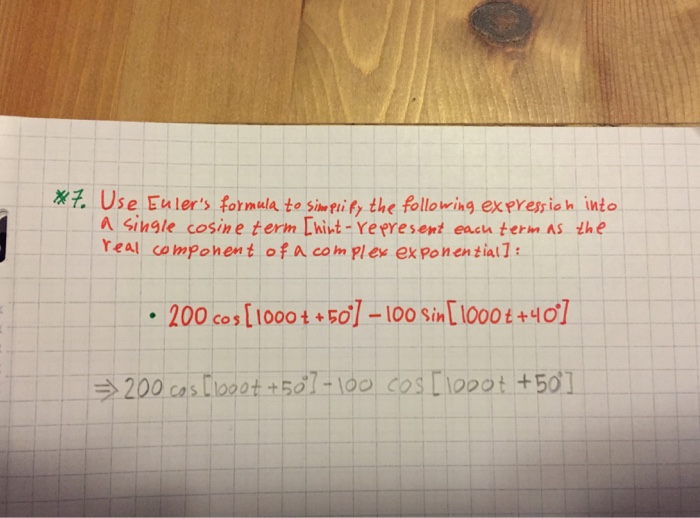 *7. Use Euler's formula to simplify the following expression into
a single cosine term [hint-represent each term as the
real component of a complex exponential]:
• 200 cos[1000t+50°]-100 sin[1000t+40°]
⇒ 200 cos[1000t+50°]-100 cos[1000t+50°]